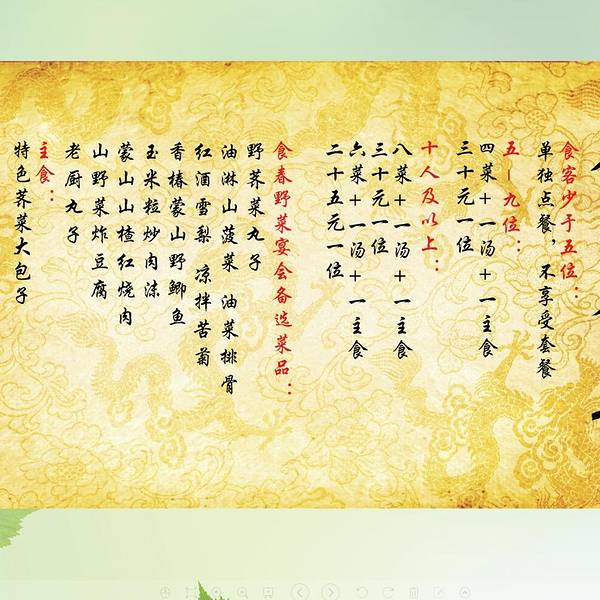 食客少于五位：
单独点餐，不享受套餐
五—九位：
四菜+一汤+一主食
三十元一位
十人及以上：
八菜+一汤+一主食
三十元一位
六菜+一汤+一主食
二十五元一位
食春野菜宴会备选菜品：
野荠菜丸子
油淋山菠菜 油菜排骨
红酒雪梨 凉拌苦菊
香椿蒙山野鲫鱼
玉米粒炒肉沫
蒙山山楂红烧肉
山野菜炸豆腐
老厨丸子
主食：
特色荠菜大包子